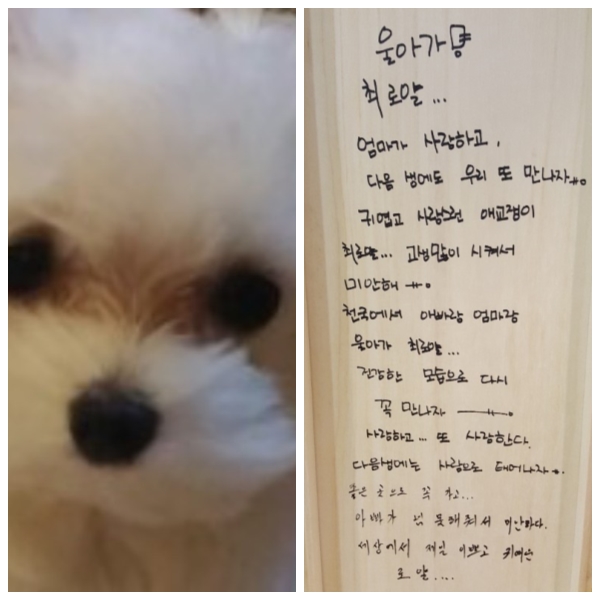 울아가
최로얄...
엄마가 사랑하고,
다음 생에도 우리 또 만나자
귀엽고 사랑스런 애교쟁이
최로얄... 고생많이 시켜서
미안해
천국에서 아빠랑 엄마랑
울아가 최로얄...
건강한 모습으로 다시
꼭 만나자
사랑하고... 또 사랑한다.
다음생에는 사람으로 태어나자
좋은 곳으로 꼭 가고...
아빠가 넘 못해줘서 미안하다.
세상에서 제일 이쁘고 귀여운
로얄....